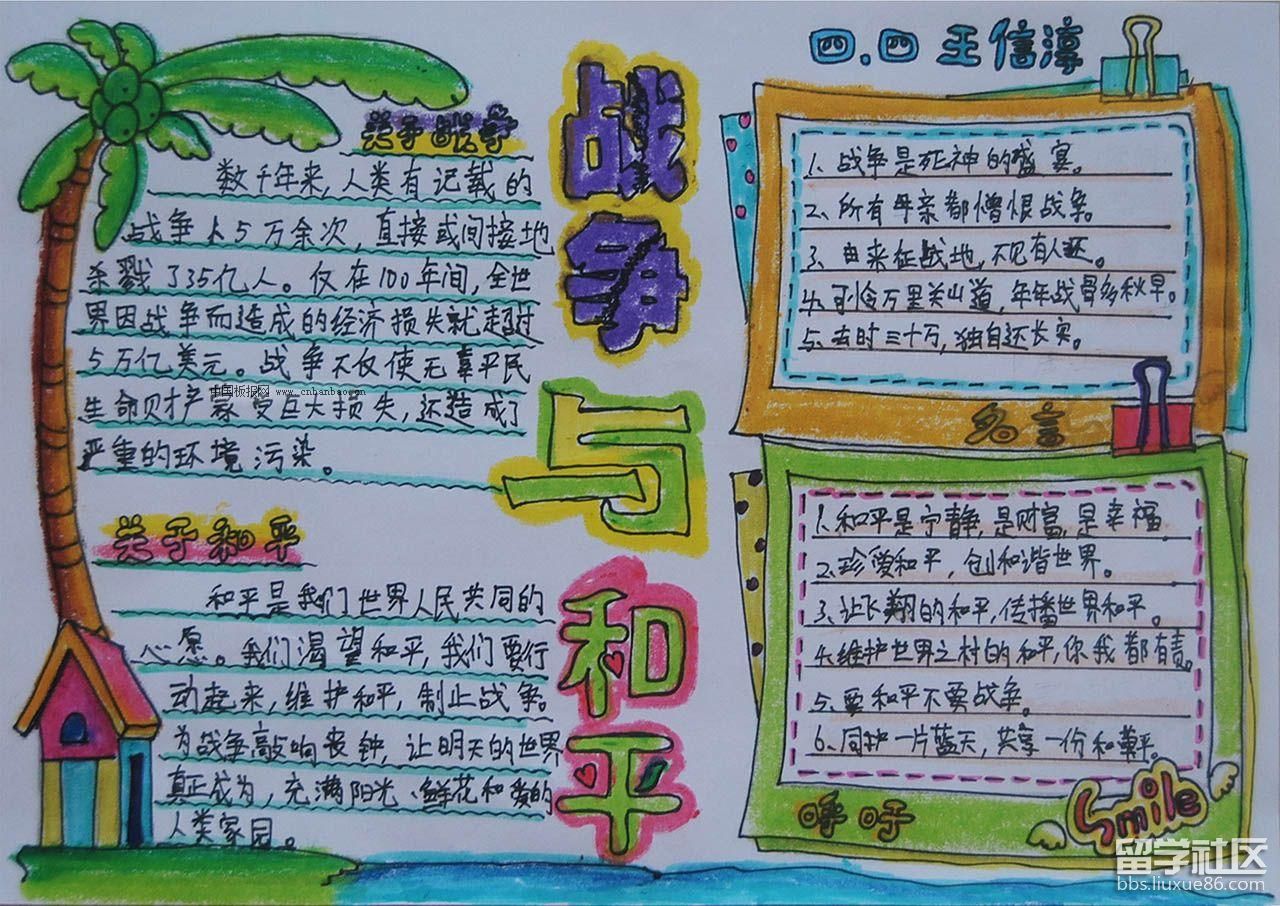 四.四 王信淳
战争与和平
关于战争
数千年来,人类有记载的
战争人5万余次,直接或间接地
杀戮了35亿人。仅在100年间,全世
界因战争而造成的经济损失就超过
5万亿美元。战争不仅使无辜平民
生命财产蒙受巨大损失,还造成了
严重的环境污染。
中国板报网 www.cnbanbao.cn
关于和平
和平是我们世界人民共同的
心愿。我们渴望和平,我们要行
动起来,维护和平,制止战争。
为战争敲响丧钟,让明天的世界
真正成为,充满阳光、鲜花和爱的
人类家园。
1、战争是死神的盛宴。
2、所有母亲都憎恨战争。
3、由来征战地,不见有人还。
4、可怜万里关山道,年年战骨多秋草。
5、去时三十万,独自还长安。
名言
1、和平是宁静,是财富,是幸福
2、珍爱和平,创和谐世界。
3、让飞翔的和平,传播世界和平。
4、维护世界之村的和平,你我都有责。
5、要和平不要战争。
6、同护一片蓝天,共享一份和平。
呼吁
Smile
留学社区
bbs.liuxue86.com